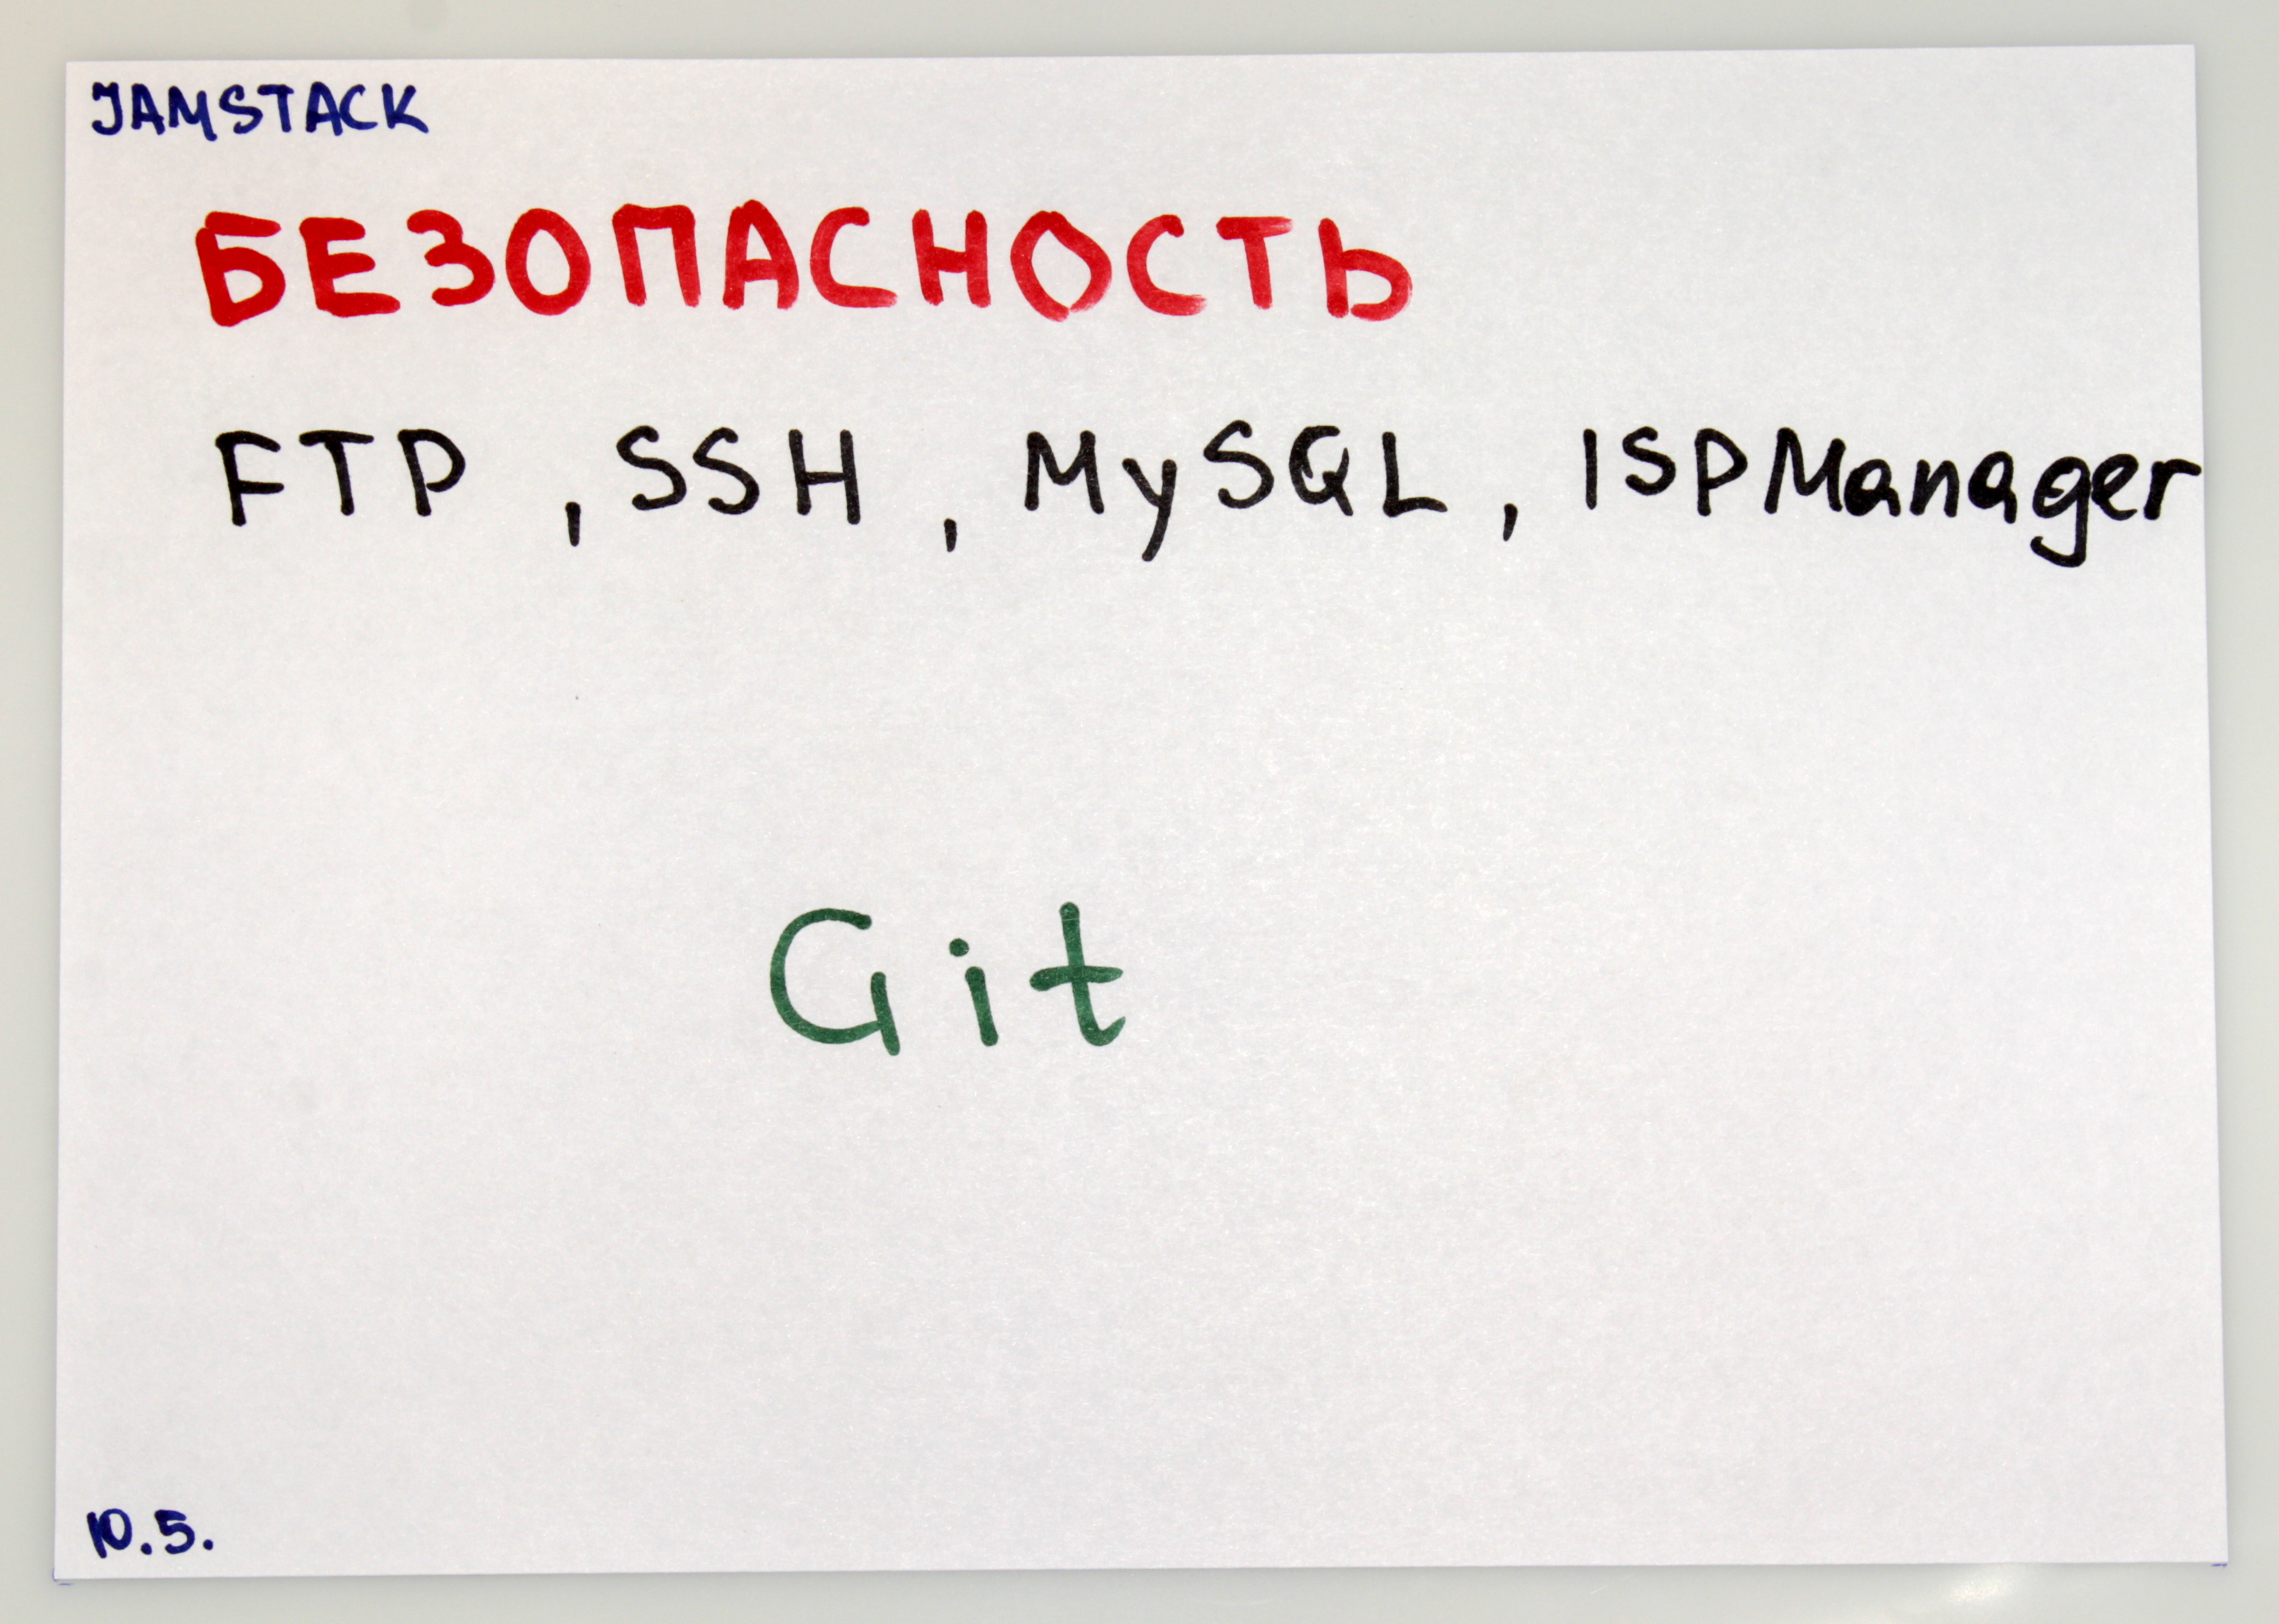 JAMSTACK
БЕЗОПАСНОСТЬ
FTP , SSH , MySQL , ISPManager
Git
10.5.